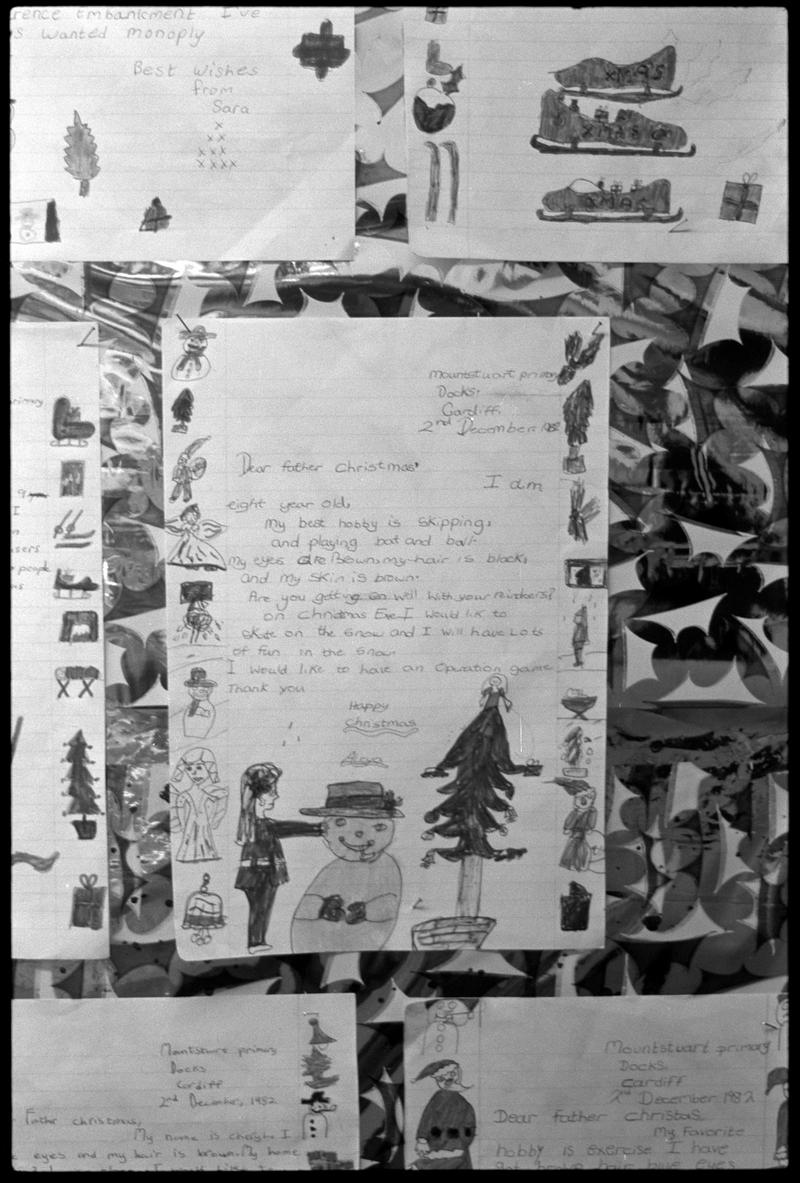 rence Embankment I've
s wanted monoply
Best Wishes
from
Sara
x
x x
x x x
x x x x
xmas
xmas
xmas
primary
I
people
Mountstuart primary
Docks,
Cardiff,
2nd December 1982
Dear father Christmas,
I am
eight year old,
my best hobby is skipping,
and playing bat and ball.
my eyes are Brown, my hair is black,
and my skin is brown.
Are you getting on well with your reindeers?
on Christmas Eve I would lik to
skate on the snow and I will have Lots
of fun in the snow.
I would like to have an Operation game
Thank you
Happy
Christmas
Mountstuart primary
Docks
Cardiff
2nd December, 1982
Father christmas,
My name is cheryl. I
eyes and my hair is brown. My home
Mountstuart primary
Docks.
Cardiff
2nd December 1982
Dear father christas
My Favorite
hobby is exercise I have
got brown hair blue eyes